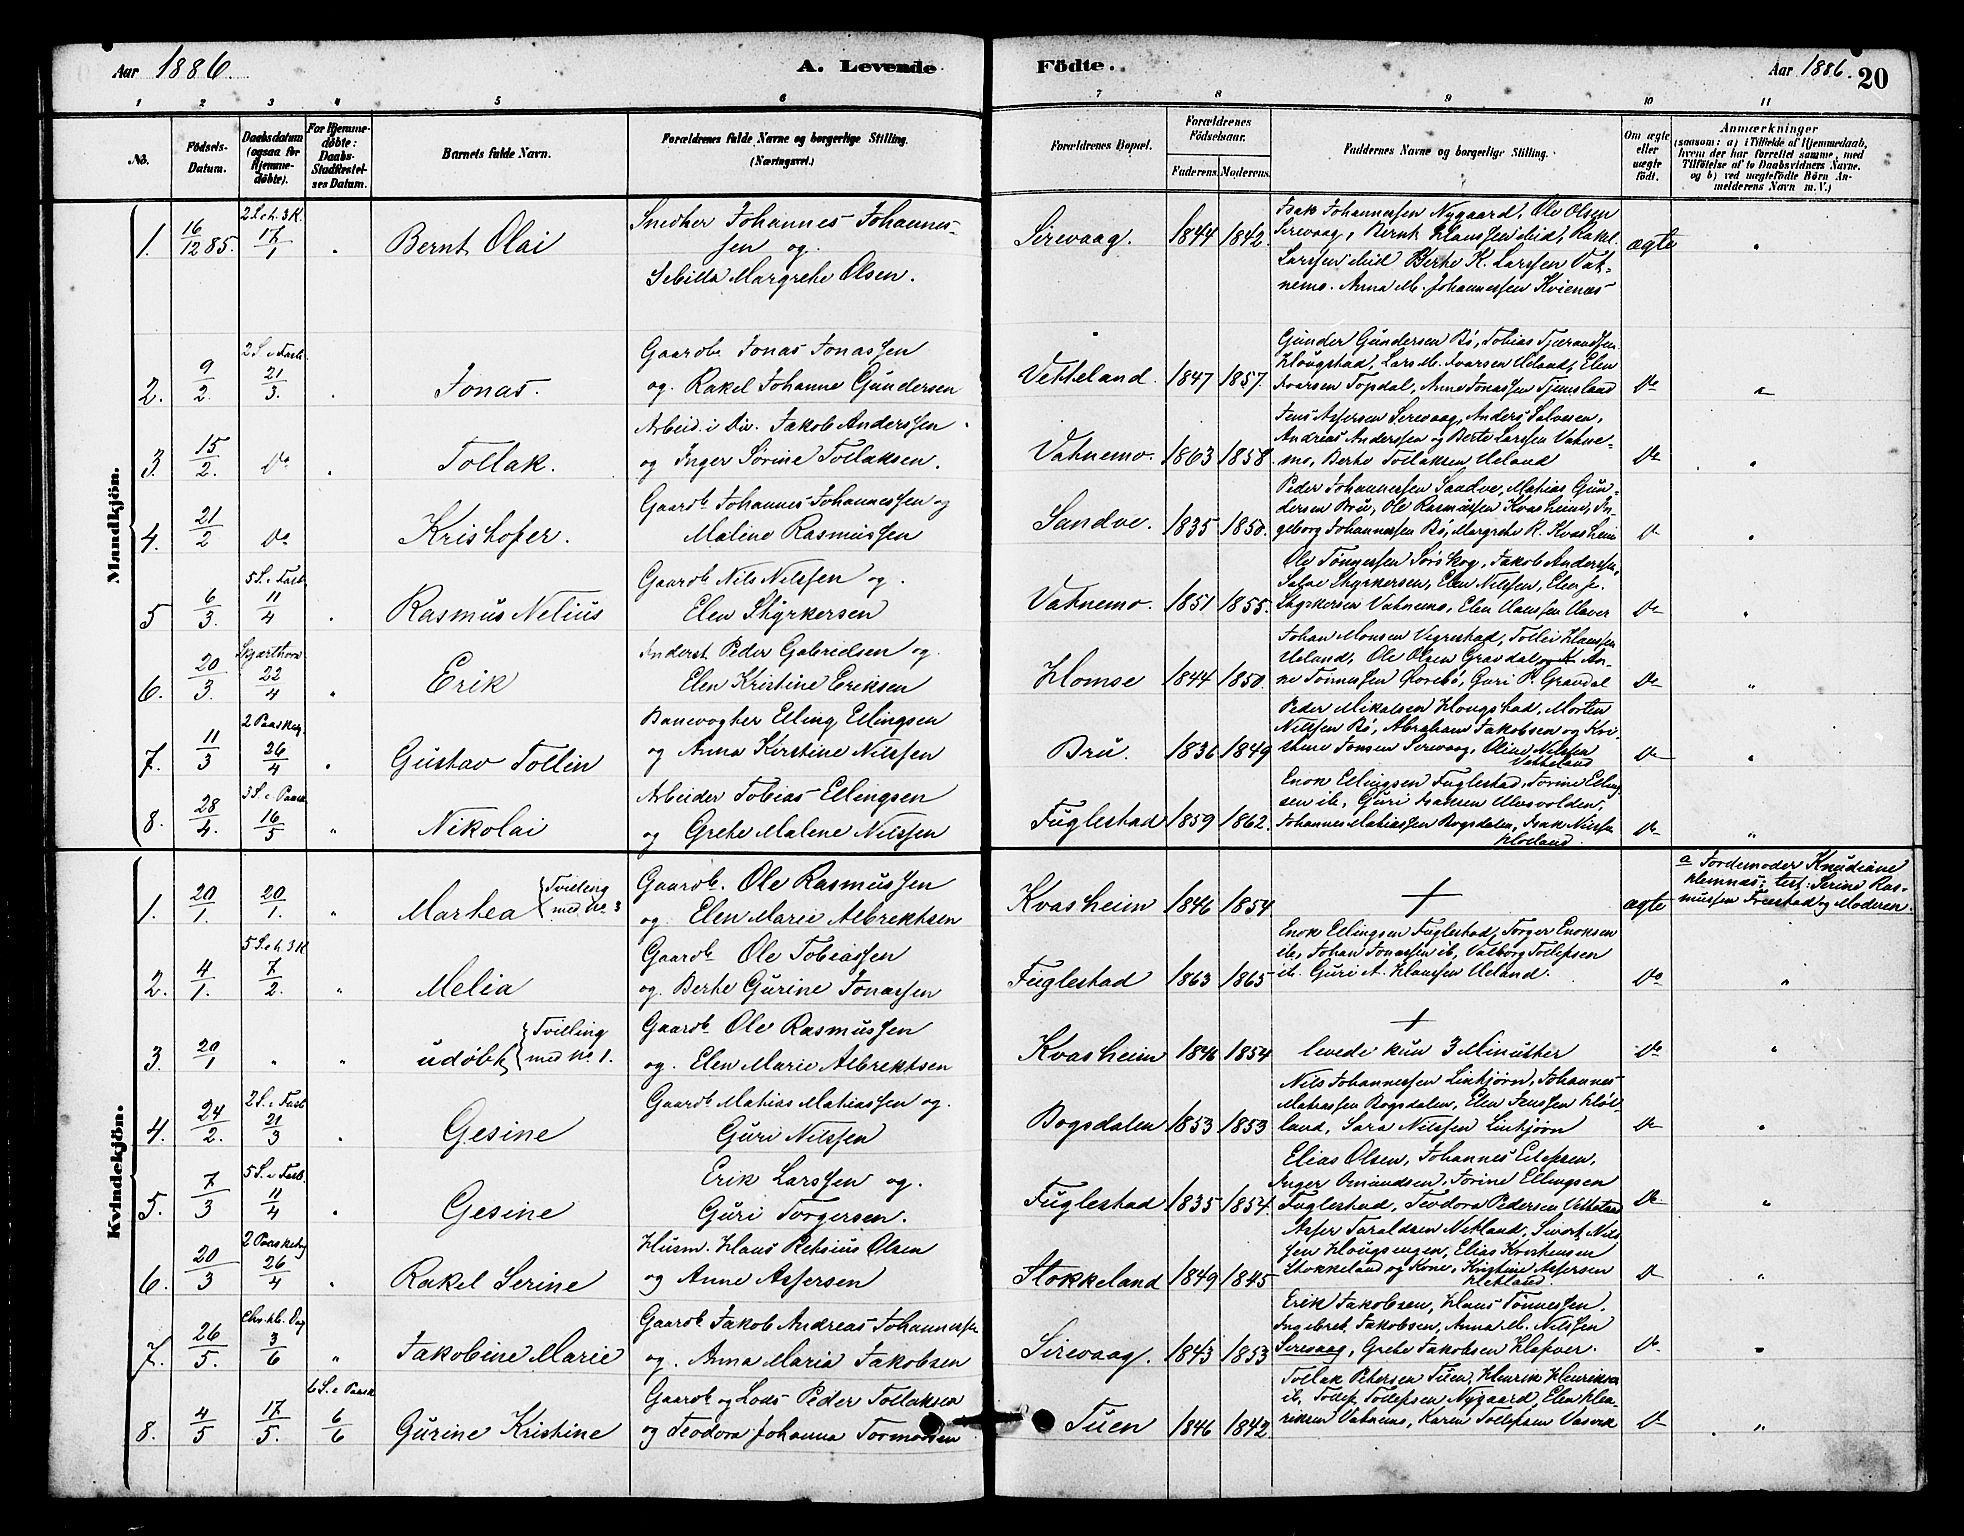 Aar 1886.
A. Levende Födte.
Aar 1886. 20
1 2 3 4 5 6 7 8 9 10 11
No.
Födsels-Datum.
Daabsdatum (ogsaa for Hjemme-döbte).
For Hjemme-döbte: Daabs-Stadfæstel-ses Datum.
Barnets fulde Navn.
Forældrenes fulde Navne og borgerlige Stilling.
(Næringsvei.)
Forældrenes Bopæl.
Forældrenes Födselsaar.
Faderens. Moderens.
Faddernes Navne og borgerlige Stilling.
Om ægte eller uægte födt.
Anmærkninger
(saasom: a) i Tilfælde af Hjemmedaab,
hvem der har forrettet samme, med
Tilföielse af to Daabsvidners Navne.
og b) ved uægtefödte Börn An-
melderens Navn m. V.)
Mandkjön.
1. 16/12 85. 2 S. e. h. 3 K. 17/1 " Bernt Olai
Snedker Johannes Johannes-
sen og
Sebilla Margrethe Olsen.
Sirevaag. 1844 1842.
Isak Johannessen Nygaard, Ole Olsen
Sirevaag, Bernt Hanssen ibid, Rakel
Larssen ibid Berte K. Larssen Vat-
nemo. Anna M. Johannessen Kvienæs
ægte "
2. 9/2. 2 S. i Fast. 21/3. Jonas.
Gaardb. Jonas Jonassen
og Rakel Johanne Gundersen
Vetteland. 1847 1857.
Gunder Gundersen Bö, Tobias Tjerandsen
Hougstad, Lars M. Ivarsen Ueland, Elen
Ivarsen Topdal, Anne Jonassen Tjemsland
Do "
3. 15/2. Do Tollak.
Arbeid. i Div. Jakob Anderssen
og Inger Sörine Tollaksen.
Vatnemo. 1863 1858.
Jens Assersen Sirevaag, Anders Salvesen,
Andreas Anderssen og Berte Larssen Vatne-
mo, Berte Tollaksen Ueland
Do "
4. 21/2 Do Kristofer.
Gaardb. Johannes Johannessen og
Malene Rasmussen
Sandve. 1835 1850.
Peder Johannessen Sandve, Mathias Gun-
dersen Bru, Ole Rasmussen Kvasheim, In-
geborg Johannessen Bö, Margrete R. Kvasheim
Do "
5 6/3. 5 S. i Fast. 11/4 Rasmus Nelius
Gaardb. Nils Nilssen og
Elen Styrkersen
Vatnemo. 1851 1855.
Ole Tönnessen Sörskog, Jakob Anderssen,
Salve Styrkersen, Elen Nilssen, Elen J.
Styrkersen Vatnemo, Elen
Do "
6. 20/3. Skjærthorsd. 22/4 " Erik
Inderst Peder Gabrielsen og
Elen Kristine Eriksen
Homse 1844 1850.
Johan Monsen Vigrestad, Tollei Hanssen
Ueland, Ole Olsen Gravdal og An-
ne Tönnessen Guri P. Gravdal
Do "
7. 11/3 2 Paaskedg. 26/4 " Gustav Tollin
Banevogter Elling Ellingsen
og Anna Kirstine Nilssen
Bru. 1836 1849
Peder Mikalsen Hougstad, Morten
Nilssen Bö, Abraham Jakobsen og Kri-
stine Jonsen Sirevaag, Oline Nilssen
Vetteland
Do "
8. 28/4. 3 S. e. Paask. 16/5 " Nikolai
Arbeider Tobias Ellingsen
og Grete Malene Nilssen
Fuglestad 1859 1862.
Enok Ellingsen Fuglestad, Torine Elling-
sen ib., Guri
Johannes Mathiassen Bogsdalen, Isak Nilssen
Hoeland.
Do "
Kvindekjön.
1. 20/1. 20/1. " Martea { Tvilling med No. 3
Gaardb. Ole Rasmussen
og Elen Marie Albrektsen
Kvasheim 1846 1854 + ægte
a Jordemoder Knudiane
test: Serine Ras-
mussen og Moderen.
2. 4/1. 5 S. e. h. 3 K. 7/2. " Melia
Gaardb. Ole Tobiassen
og Berte Gurine Jonassen
Fuglestad 1863 1865
Enok Ellingsen Fuglestad, Torger Enoksen
ib., Johan Jonassen ib, Valborg Tollefsen
ib. Guri A. Hanssen Ueland.
Do "
3. 20/1 " " udöbt { Tvilling med No. 1.
Gaardb. Ole Rasmussen
og. Elen Marie Albrektsen
Kvasheim 1846 1854
+
levede kun 3 Minutter
Do "
4. 24/2. 2 S. i Fast 21/3 " Gesine
Gaardb. Mathias Mathiassen og
Guri Nilssen
Bogsdalen 1853 1853
Nils Johannessen Linkjörn, Johannes
Mathiassen Bogsdalen, Elen Jenssen
land, Sara Nilssen Linkjörn
Do "
5. 7/3 5 S. i Fast. 11/4 " Gesine
Erik Larssen og
Guri Torgersen.
Fuglestad 1835 1854.
Elias Olsen, Johannes Edefsen,
Inger Omundsen, Torine Ellingsen
Fuglestad, Teodora Pedersen Vetteland
Do "
6. 20/3 2 Paaskedg 26/4 " Rakel Serine
Husm. Hans Retsius Olsen
og Anne Assersen
Stokkeland 1849 1845
Asser Taraldsen Netland, Sivert Nils-
sen Hougsengen, Elias Kristensen
Stokkeland og Kone, Kristine Assersen
Netland.
Do "
7. 26/5. Chr. hl. Dag 3/6 " Jakobine Marie
Gaardb. Jakob Andreas Johannessen
og Anna Maria Jakobsen
Sirevaag. 1843 1853
Erik Jakobsen, Hans Tönnessen.
Ingebret Jakobsen, Anna M. Nilssen
Sirevaag, Grete Jakobsen Hafver.
Do "
8. 4/5 17/5. 6 S. e. Paask 6/6 Gurine Kristine
Gaardb. og Lods Peder Tollaksen
og Teodora Johanna Tormodsen
Tuen 1846 1842
Tollak Petersen Tuen, Henrik Henriksen
ib, Tollef Tollefsen Nygaard, Elen Hen-
riksen Vatnemo, Karen Tollefsen
Do "